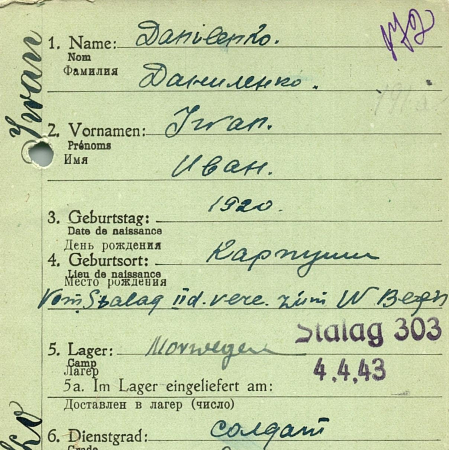 1. Name: Danilenko.
Nom
Фамилия Даниленко.
2. Vornamen: Iwan.
Prénoms
Имя Иван.
3. Geburtstag: 1920.
Date de naissance
День рождения
4. Geburtsort: Карпуши
Lieu de naissance
Место рождения
Vom Stalag II d. zum
5. Lager: Norwegen Stalag 303
Camp 4.4.43
Лагер
5a. Im Lager eingeliefert am:
Доставлен в лагер (число)
6. Dienstgrad: солдат
Grade
Iwan
ko